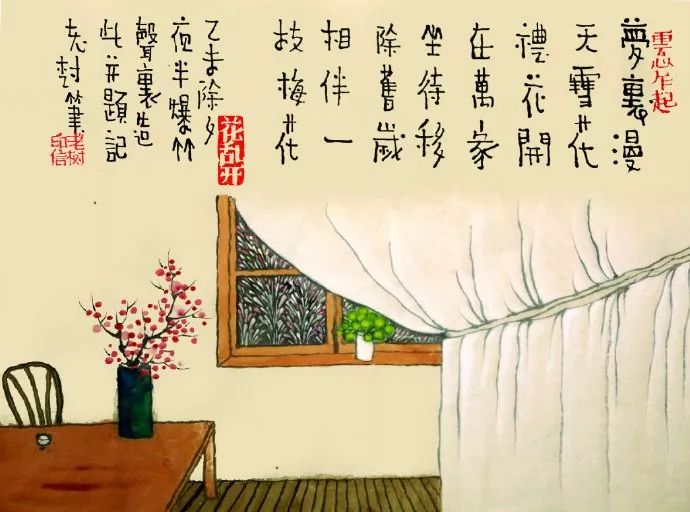 夢裏漫
天雪花
禮花開
在萬家
坐待移
除舊歲
相伴一
枝梅花
花乱开
乙未除夕
夜半爆竹
聲裏造
此并題記
老樹筆
老树
印信